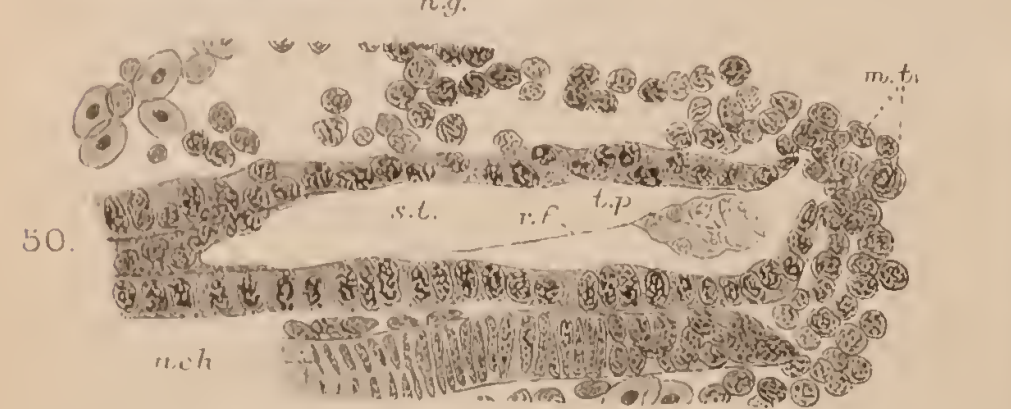 n.g.
m.t.
s.t. r.f. t.p
50.
n.ch